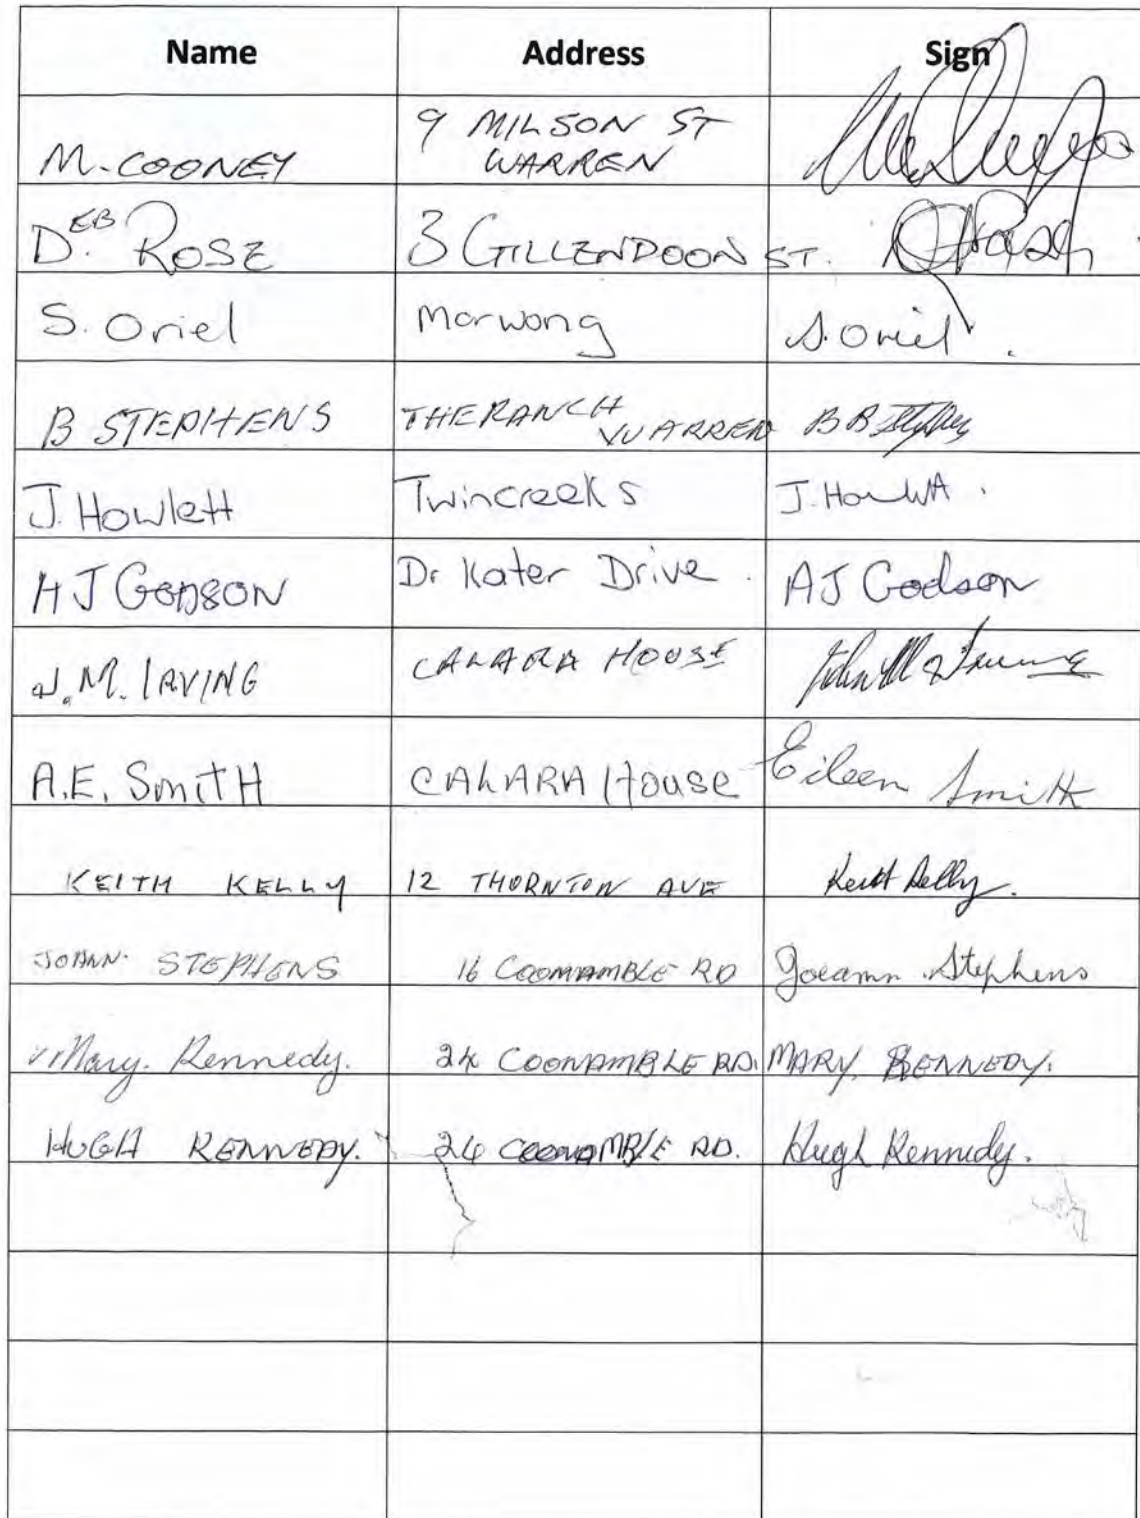 Name Address Sign
M. COONEY 9 MILSON ST
WARREN
DEB ROSE 3 GILLENDOON ST.
S. Oriel Marwong S. Oriel.
B STEPHENS THE RANCH
WARREN B B Stephens
J. Howlett Twincreeks J. Howlett.
A J GODSON Dr Kater Drive. AJ Godson
J.M. IRVING CALARA HOUSE John M Irving
A.E. SMITH CALARA House Eileen Smith
KEITH KELLY 12 THORNTON AVE Keith Kelly.
JOANN. STEPHENS 16 COONAMBLE RD Joeann Stephens
Mary. Kennedy. 24 COONAMBLE RD. MARY. KENNEDY.
HUGH KENNEDY. 24 COONAMBLE RD. Hugh Kennedy.